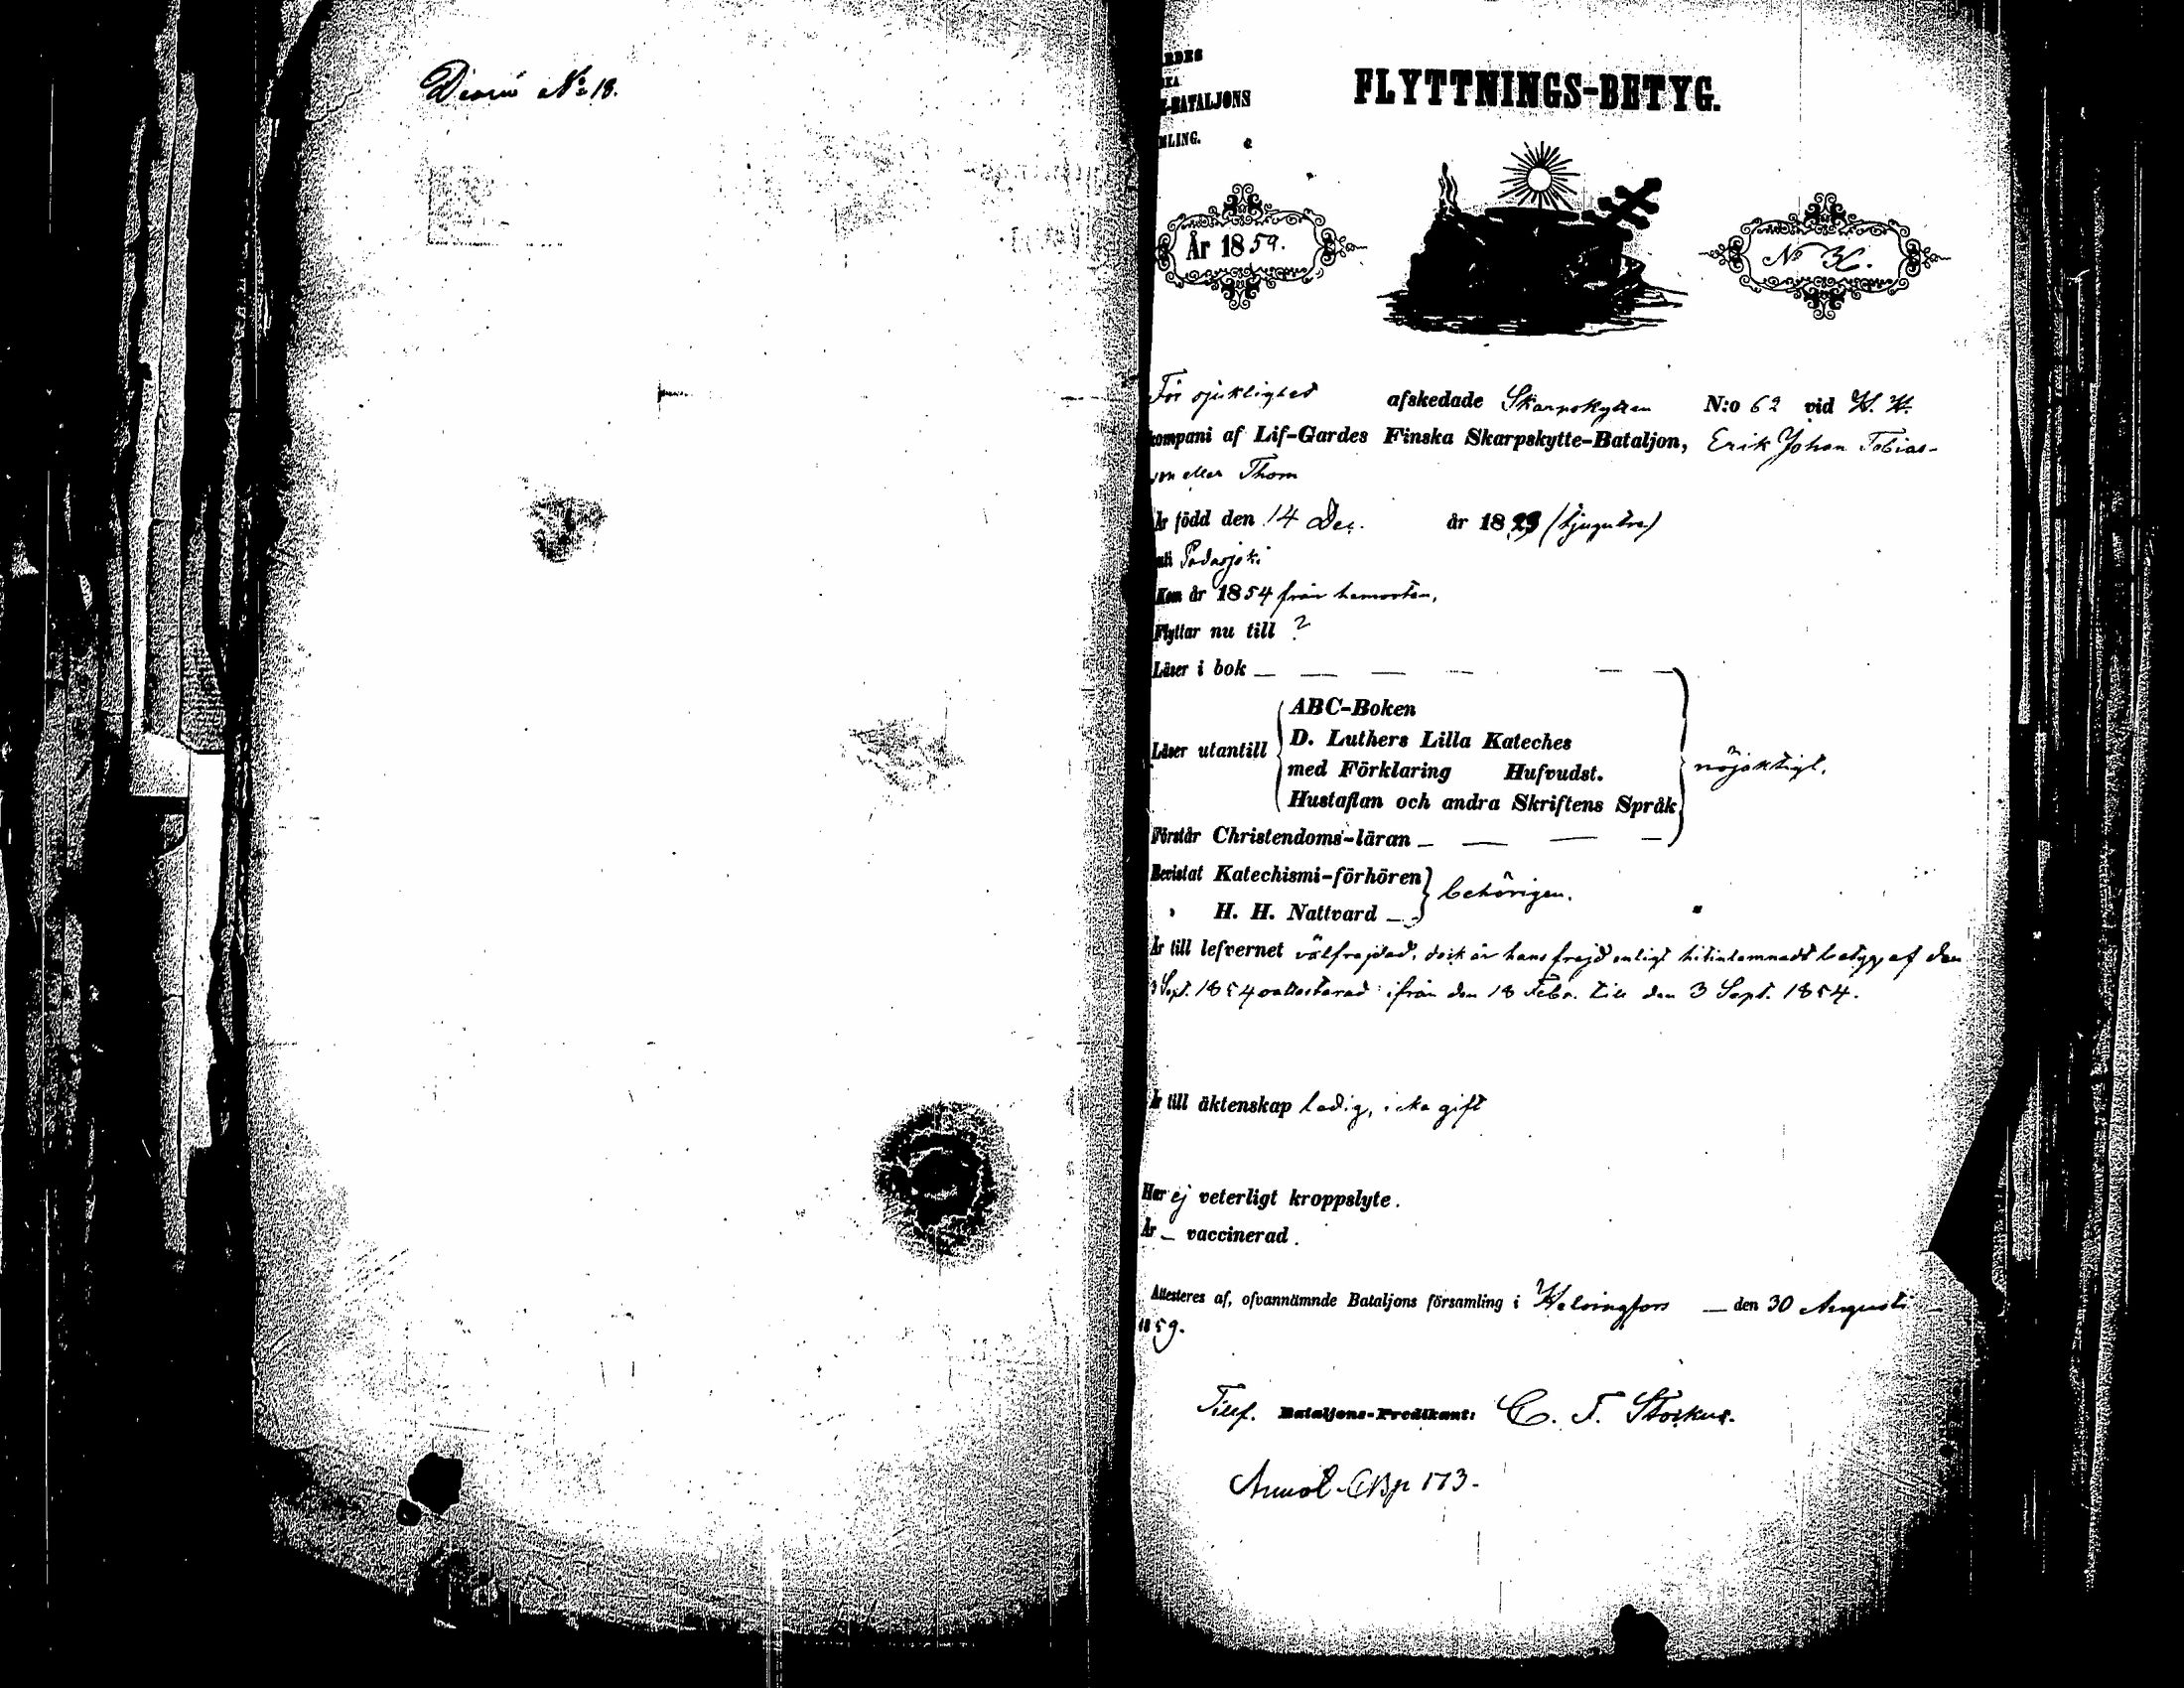 Diarii No 18.
RDES
KA
-BATALJONS
MLING.
FLYTTNINGS-BETYG.
År 1859.
No
För sjuklighet afskedade Skarpskytten N:o 62 vid
kompani af Lif-Gardes Finska Skarpskytte-Bataljon, Erik Johan Tobias-
son eller Thom
Är född den 14 Dec. år 1823 (tjugutre)
uti Padasjoki
Kom år 1854 från hemorten,
Flyttar nu till ?
Läser i bok — — — — — —
Läser utantill
ABC-Boken
D. Luthers Lilla Kateches
med Förklaring Hufvudst.
Hustaflan och andra Skriftens Språk
nöjaktigt.
Förstår Christendoms-läran — — — —
Bevistat Katechismi-förhören
" H. H. Nattvard —
behörigen.
Är till lefvernet välfrejdad, dock är hans frejd enligt hitinlemnadt betyg af den
3 Sept. 1854 oattesterad ifrån den 18 Febr. till den 3 Sept. 1854.
Är till äktenskap ledig, icke gift
Har ej veterligt kroppslyte.
Är — vaccinerad.
Attesteres af, ofvannämnde Bataljons församling i Helsingfors — den 30 Augusti
1859.
Tillf. Bataljons-Predikant: C. F.
173.